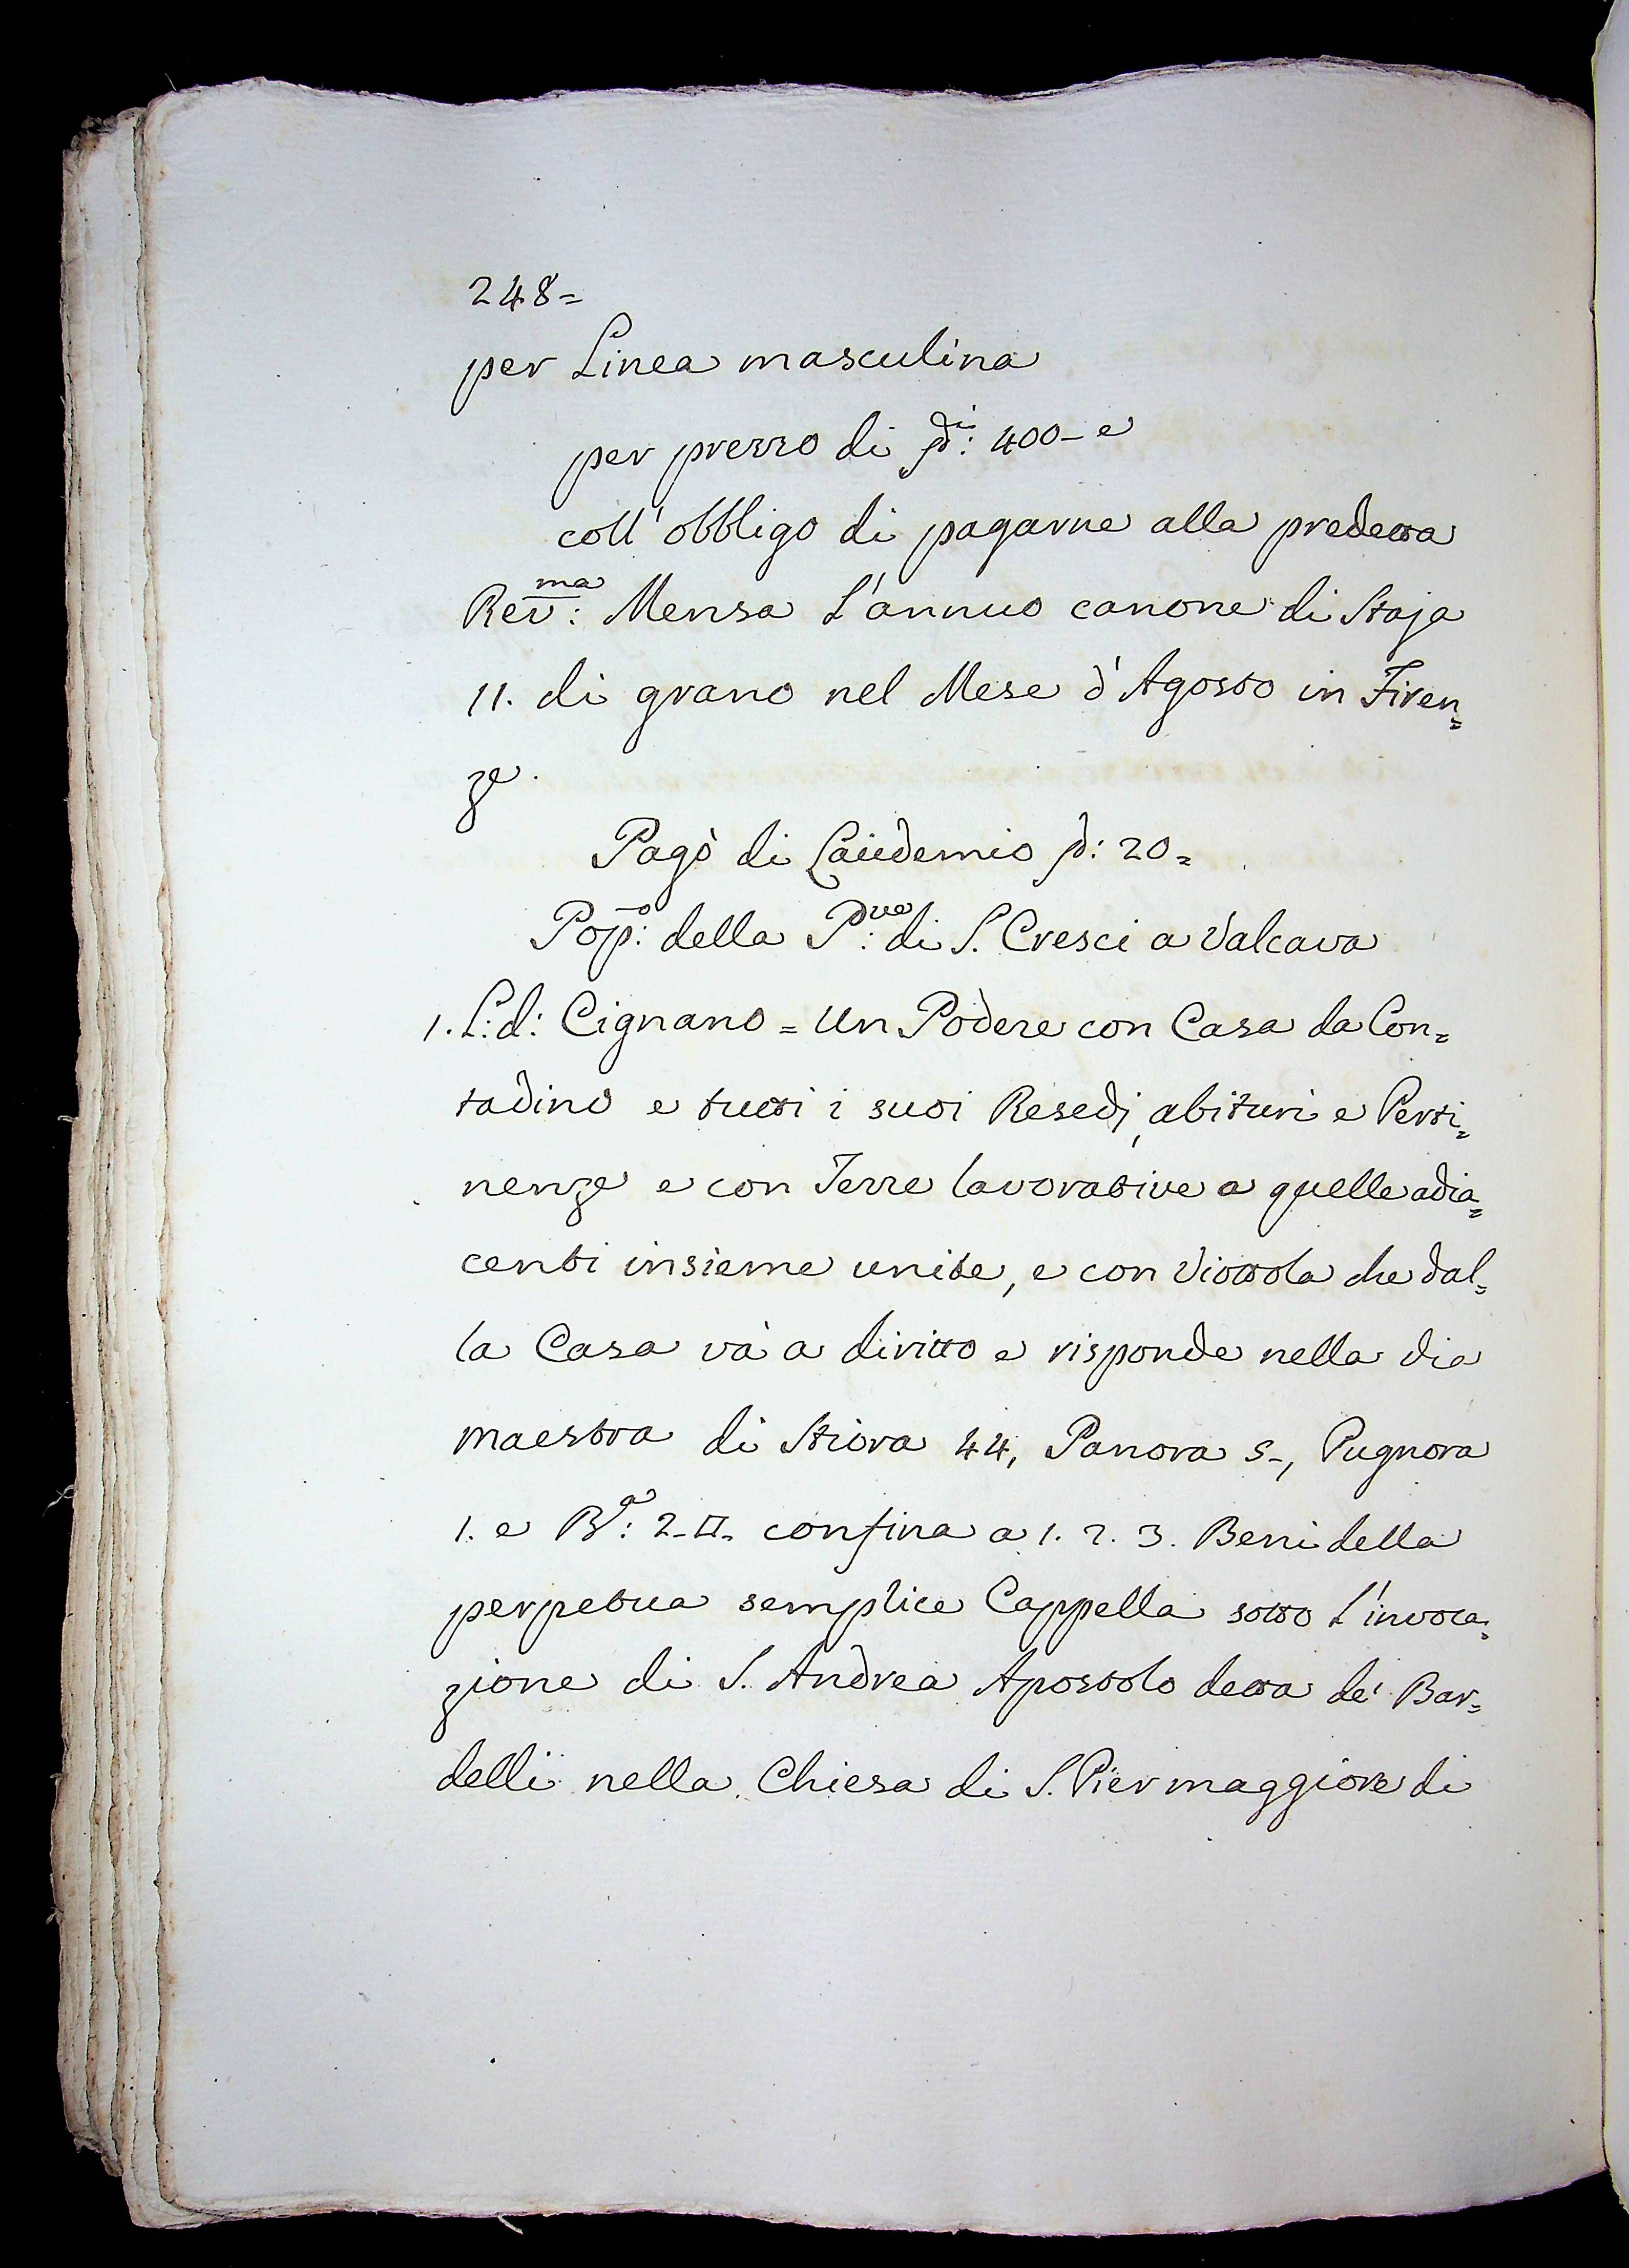 248=
per Linea masculina
per prezzo di ∫di: 400- e
coll' obbligo di pagarne alla predetta
Rev:ma Mensa L'annuo canone di Staja
11. di grano nel Mese d'Agosto in Firen=
ze.
Pagò di Laudemio ∫d: 20=
Pop:o della P:ve di S. Cresci a Valcava
1. L: d: Cignano = Un Podere con Casa da Con=
tadino e tutti i suoi Resedj, abituri e Perti=
nenze e con Terre lavorative a quelle adia=
centi insieme unite, e con Viottola che dal=
la Casa và a diritto e risponde nella via
maestra di Stiora 44, Panora 5-, Pugnora
1. e B:a 2-□. confina a 1. 2. 3. Beni della
perpetua semplice Cappella sotto l'invoca=
zione di S. Andrea Apostolo detta de' Bar=
delli nella Chiesa di S. Pier maggiore di